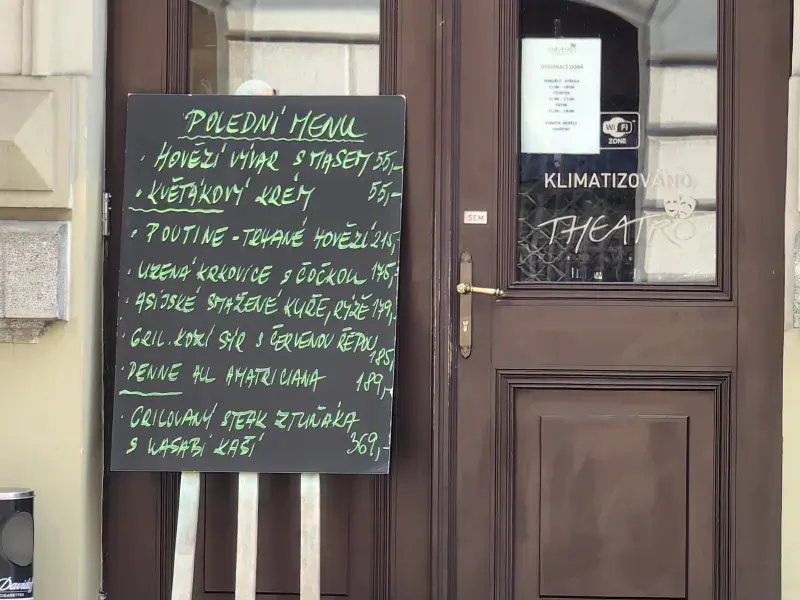 POLEDNÍ MENU
· HOVĚZÍ VÝVAR S MASEM 55,-
· KVĚTÁKOVÝ KRÉM 55,-
· POUTINE - TRHANÉ HOVĚZÍ 215,-
· UZENÁ KRKOVICE S ČOČKOU 175,-
· ASIJSKÉ SMAŽENÉ KUŘE, RÝŽE 179,-
· GRIL. KOZÍ SÝR S ČERVENOU ŘEPOU 185,-
· PENNE ALL AMATRICIANA 189,-
· GRILOVANÝ STEAK Z TUŇÁKA
S WASABI KAŠÍ 369,-
OTEVÍRACÍ DOBA
Wi Fi
ZONE
KLIMATIZOVÁNO
THEATRO
SEM
Davidoff
CIGARETTES